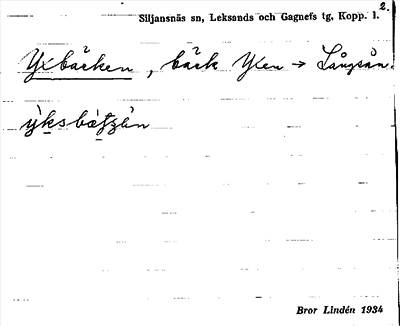 2.
Siljansnäs sn, Leksands och Gagnefs tg, Kopp. l.
Yxbäcken, bäck Yxen → Långsån.
Bror Lindén 1934